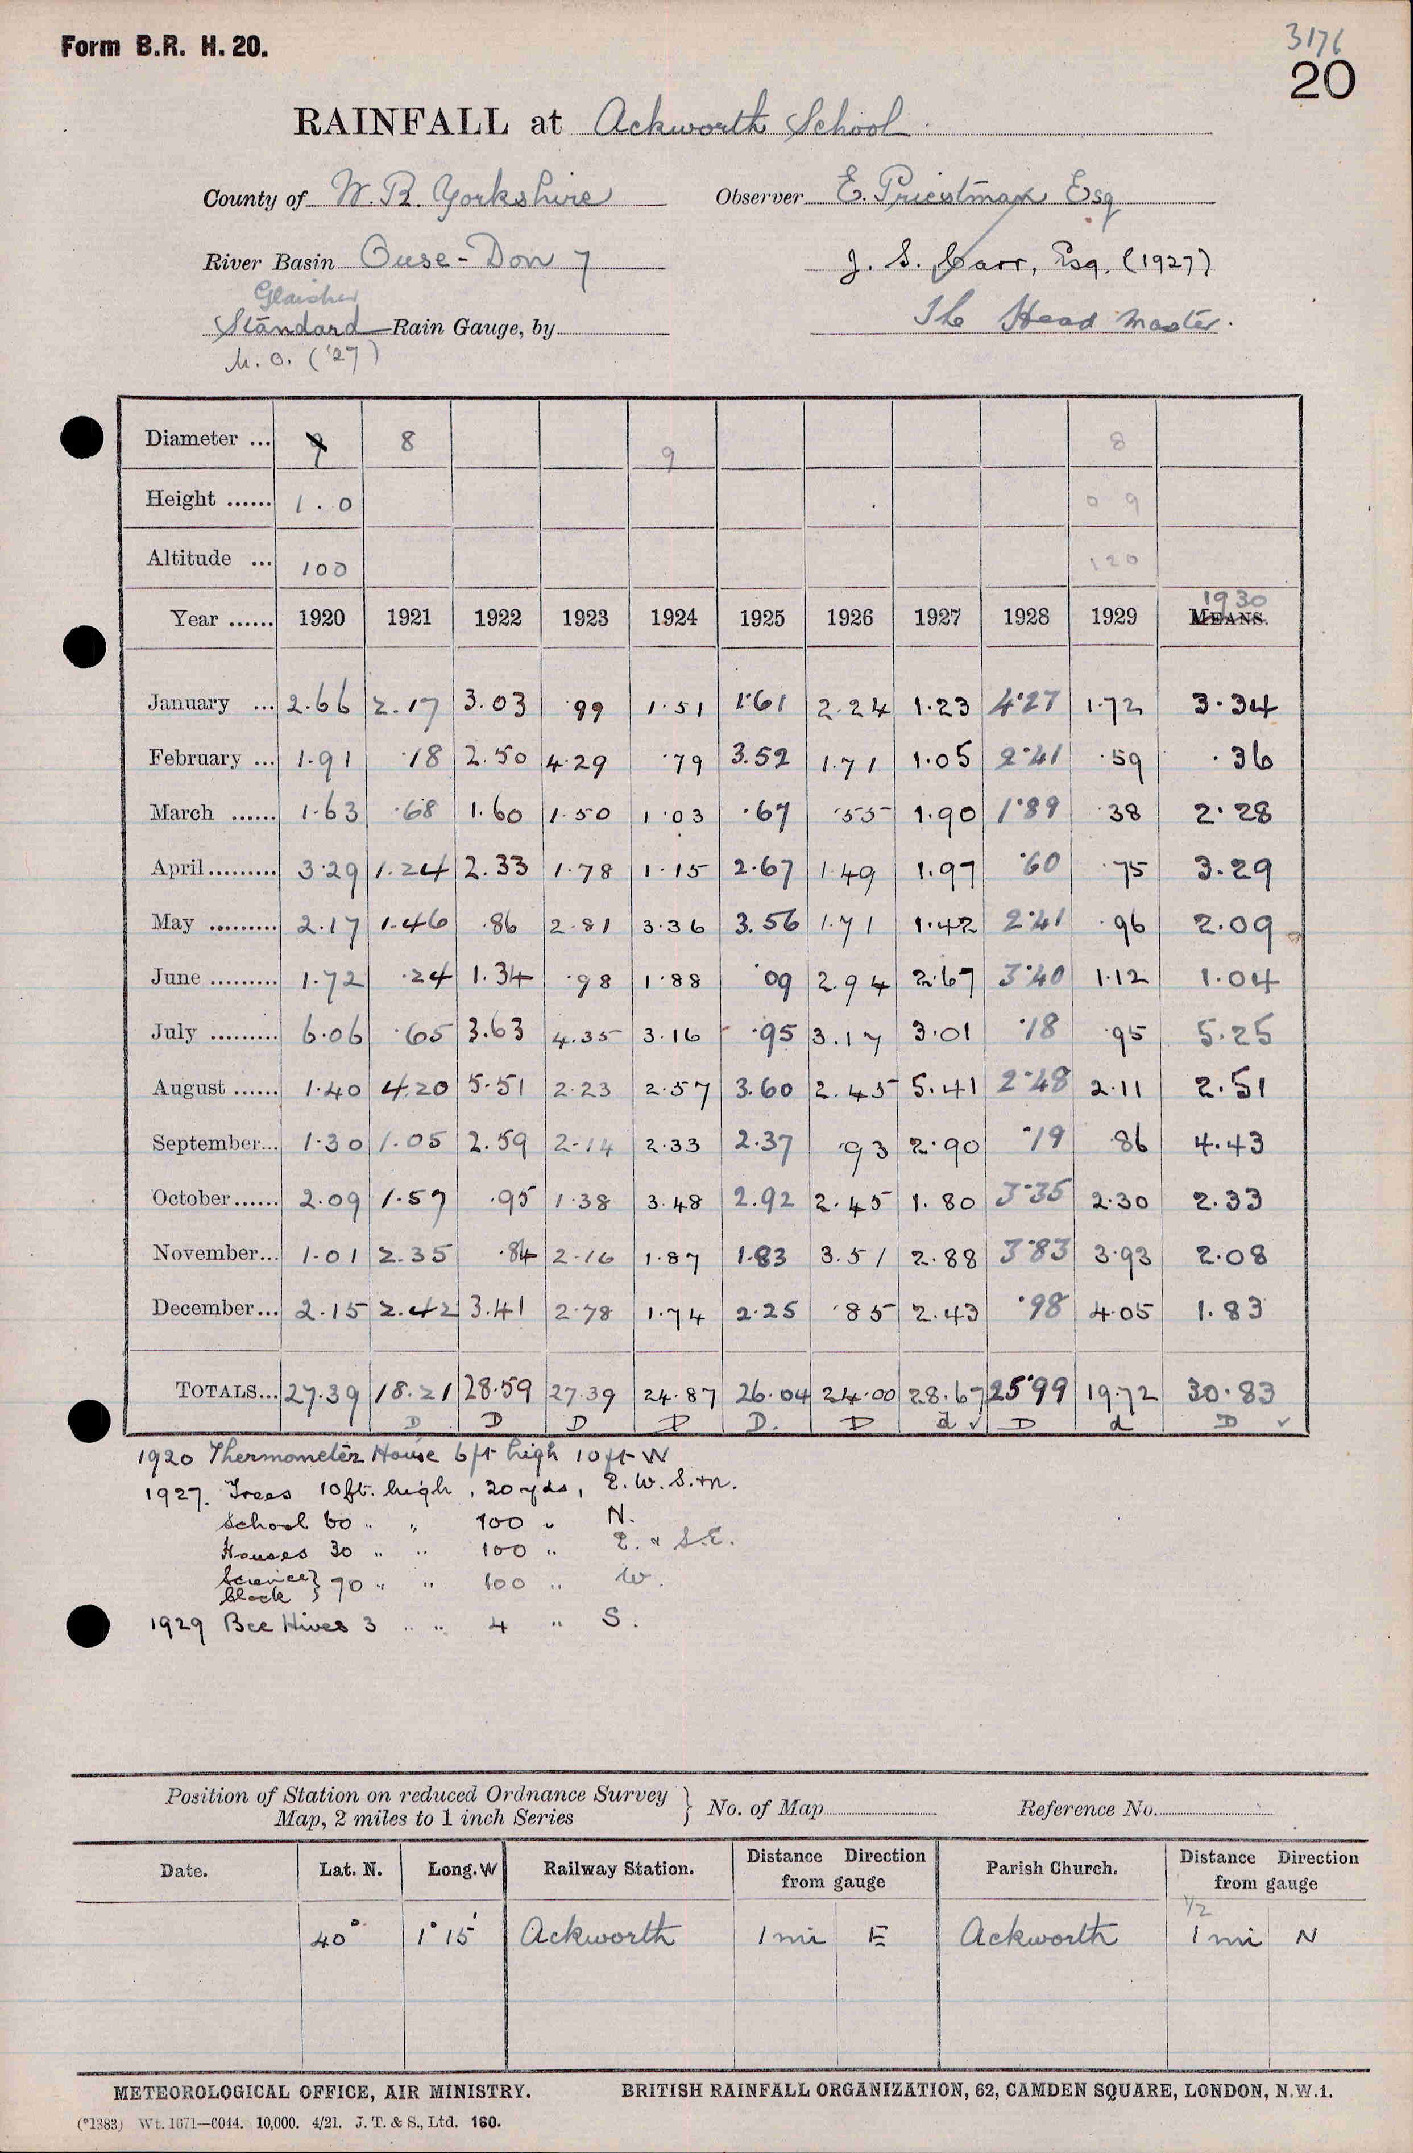 Form B.R. H. 20.
3176
20
RAINFALL at Ackworth School
County of W. R. Yorkshire Observer E. Priestman Esq
River Basin Ouse - Don 7 J. S. Carr, Esq. (1927)
Glaisher
Standard Rain Gauge, by The Head Master.
M.O. ('27)
Diameter ... 9 8 9 8
Height ...... 1.0 0 9
Altitude ... 100 120
1930
Year ...... 1920 1921 1922 1923 1924 1925 1926 1927 1928 1929 MEANS.
January ... 2.66 2.17 3.03 .99 1.51 1.61 2.24 1.23 4.27 1.72 3.34
February ... 1.91 .18 2.50 4.29 .79 3.52 1.71 1.05 2.41 .59 .36
March ...... 1.63 .68 1.60 1.50 1.03 .67 .55 1.90 1.89 .38 2.28
April......... 3.29 1.24 2.33 1.78 1.15 2.67 1.49 1.97 .60 .75 3.29
May ......... 2.17 1.46 .86 2.81 3.36 3.56 1.71 1.42 2.41 .96 2.09
June ......... 1.72 .24 1.34 .98 1.88 .09 2.94 2.67 3.40 1.12 1.04
July ......... 6.06 .65 3.63 4.35 3.16 .95 3.17 3.01 .18 .95 5.25
August ...... 1.40 4.20 5.51 2.23 2.57 3.60 2.45 5.41 2.48 2.11 2.51
September... 1.30 1.05 2.59 2.14 2.33 2.37 .93 2.90 .19 .86 4.43
October...... 2.09 1.57 .95 1.38 3.48 2.92 2.45 1.80 3.35 2.30 2.33
November... 1.01 2.35 .84 2.16 1.87 1.83 3.51 2.88 3.83 3.93 2.08
December... 2.15 2.42 3.41 2.78 1.74 2.25 .85 2.43 .98 4.05 1.83
TOTALS... 27.39 18.21 28.59 27.39 24.87 26.04 24.00 28.67 25.99 19.72 30.83
D D D D D. D d ✓ D d D ✓
1920 Thermometer House 6ft high 10ft W
1927. Trees 10ft. high, 20 yds, E. W. S. + N.
School 60 " " 100 " N.
Houses 30 " " 100 " E. & S.E.
Science } 70 " " 100 " W.
block }
1929 Bee Hives 3 " " 4 " S.
Position of Station on reduced Ordnance Survey } No. of Map Reference No.
Map, 2 miles to 1 inch Series
Date. Lat. N. Long. W Railway Station. Distance Direction from gauge Parish Church. Distance Direction from gauge
1/2
40° 1° 15' Ackworth 1 mi E Ackworth 1 mi N
METEOROLOGICAL OFFICE, AIR MINISTRY. BRITISH RAINFALL ORGANIZATION, 62, CAMDEN SQUARE, LONDON, N.W.1.
(*1383) Wt. 1671—6044. 10,000. 4/21. J. T. & S., Ltd. 160.